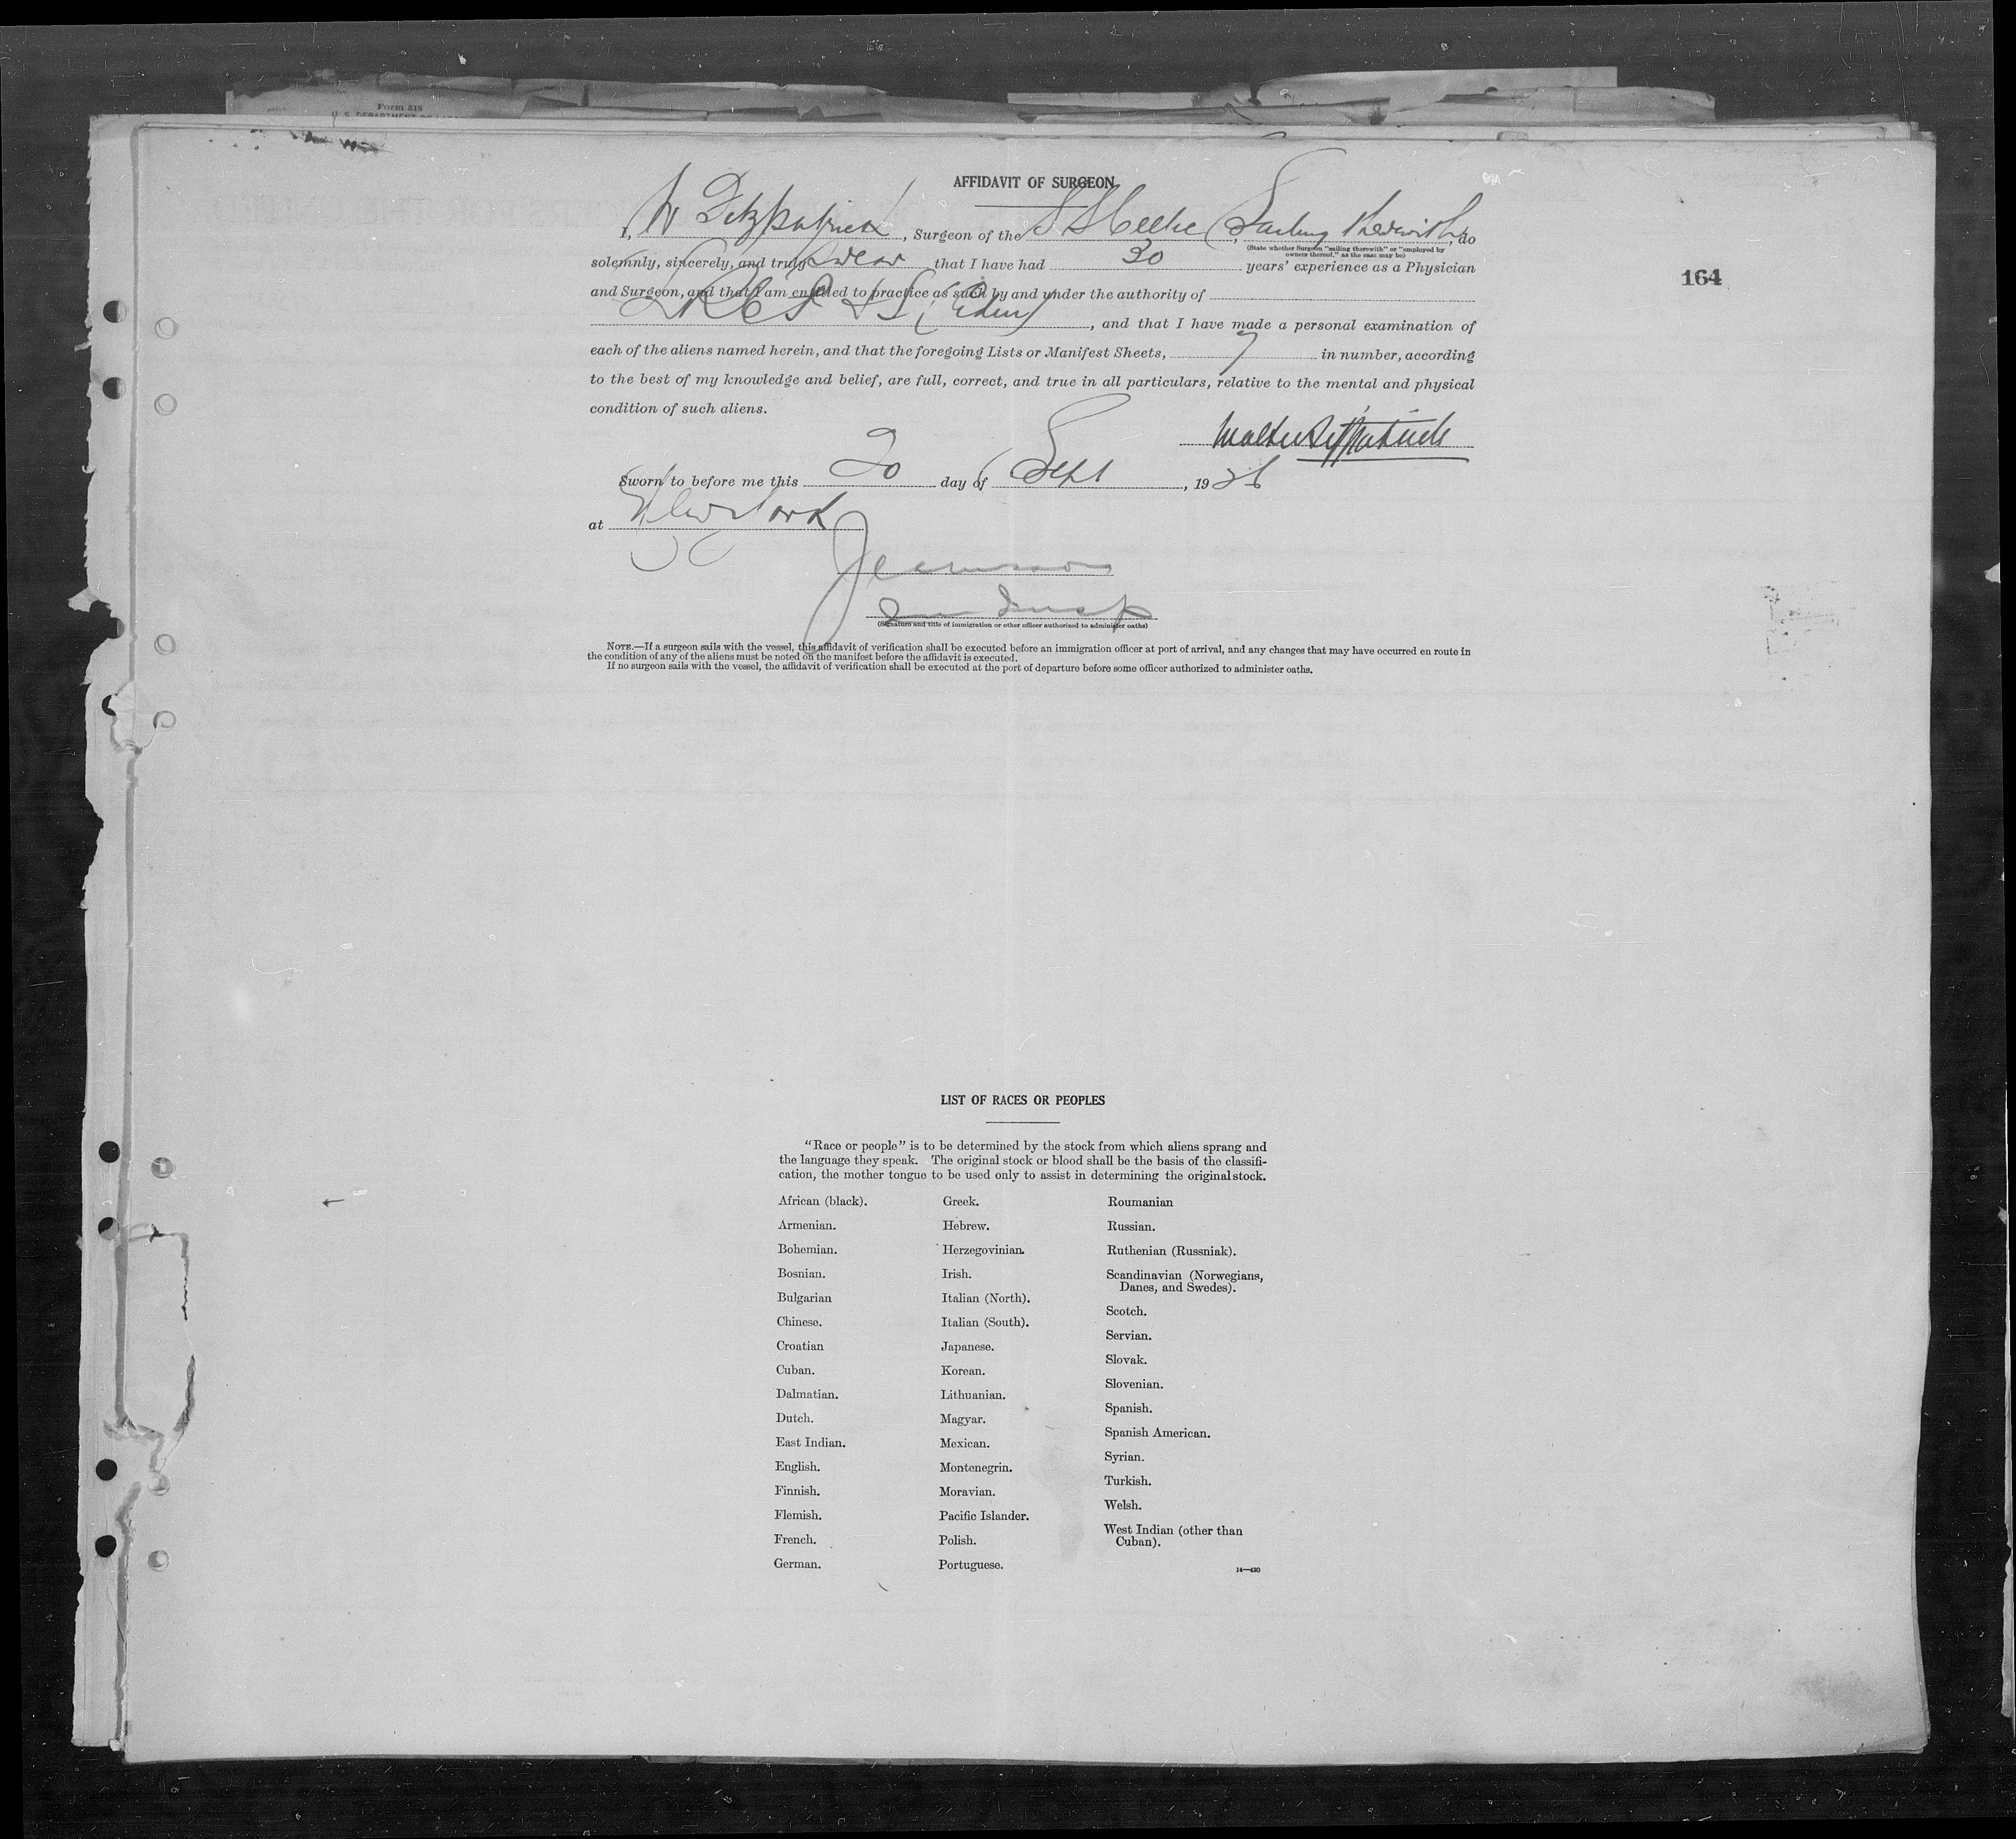 Form 518
AFFIDAVIT OF SURGEON
I, W Fitzpatrick, Surgeon of the S S Celtic, Sailing therewith, do
(State whether Surgeon "sailing therewith" or "employed by
owners thereof," as the case may be)
solemnly, sincerely, and truly swear that I have had 30 years' experience as a Physician
164
and Surgeon, and that I am entitled to practice as such by and under the authority of
LRCP & S (Edin), and that I have made a personal examination of
each of the aliens named herein, and that the foregoing Lists or Manifest Sheets, 7 in number, according
to the best of my knowledge and belief, are full, correct, and true in all particulars, relative to the mental and physical
condition of such aliens.
Walter Fitzpatrick
Sworn to before me this 20 day of Sept, 1926
at New York
Insp
(Signature and title of immigration or other officer authorized to administer oaths)
NOTE.—If a surgeon sails with the vessel, this affidavit of verification shall be executed before an immigration officer at port of arrival, and any changes that may have occurred en route in
the condition of any of the aliens must be noted on the manifest before the affidavit is executed.
If no surgeon sails with the vessel, the affidavit of verification shall be executed at the port of departure before some officer authorized to administer oaths.
LIST OF RACES OR PEOPLES
"Race or people" is to be determined by the stock from which aliens sprang and
the language they speak. The original stock or blood shall be the basis of the classifi-
cation, the mother tongue to be used only to assist in determining the original stock.
African (black).
Armenian.
Bohemian.
Bosnian.
Bulgarian
Chinese.
Croatian
Cuban.
Dalmatian.
Dutch.
East Indian.
English.
Finnish.
Flemish.
French.
German.
Greek.
Hebrew.
Herzegovinian.
Irish.
Italian (North).
Italian (South).
Japanese.
Korean.
Lithuanian.
Magyar.
Mexican.
Montenegrin.
Moravian.
Pacific Islander.
Polish.
Portuguese.
Roumanian
Russian.
Ruthenian (Russniak).
Scandinavian (Norwegians,
Danes, and Swedes).
Scotch.
Servian.
Slovak.
Slovenian.
Spanish.
Spanish American.
Syrian.
Turkish.
Welsh.
West Indian (other than
Cuban).
14—430